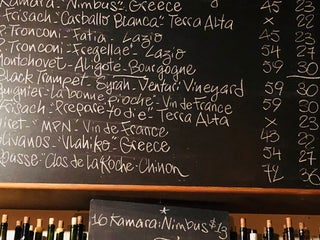 Kamara "Nimbus" Greece 45 23
Frisach "Carballo Blanca" Terra Alta x 22
P. Tronconi "Fatia" Lazio 45 23
P. Tronconi "Fregellae" Lazio 54 27
Montchovet Aligoté Bourgogne 59 30
Black Trumpet Syrah Venturi Vineyard 59 30
"La bonne pioche" Vin de France 59 30
Frisach "Prepare to die" Terra Alta x 23
"MPN" Vin de France
"Vlahiko" Greece 54 27
"Clos de La Roche" Chinon 72 36
*
16 Kamara "Nimbus" $13